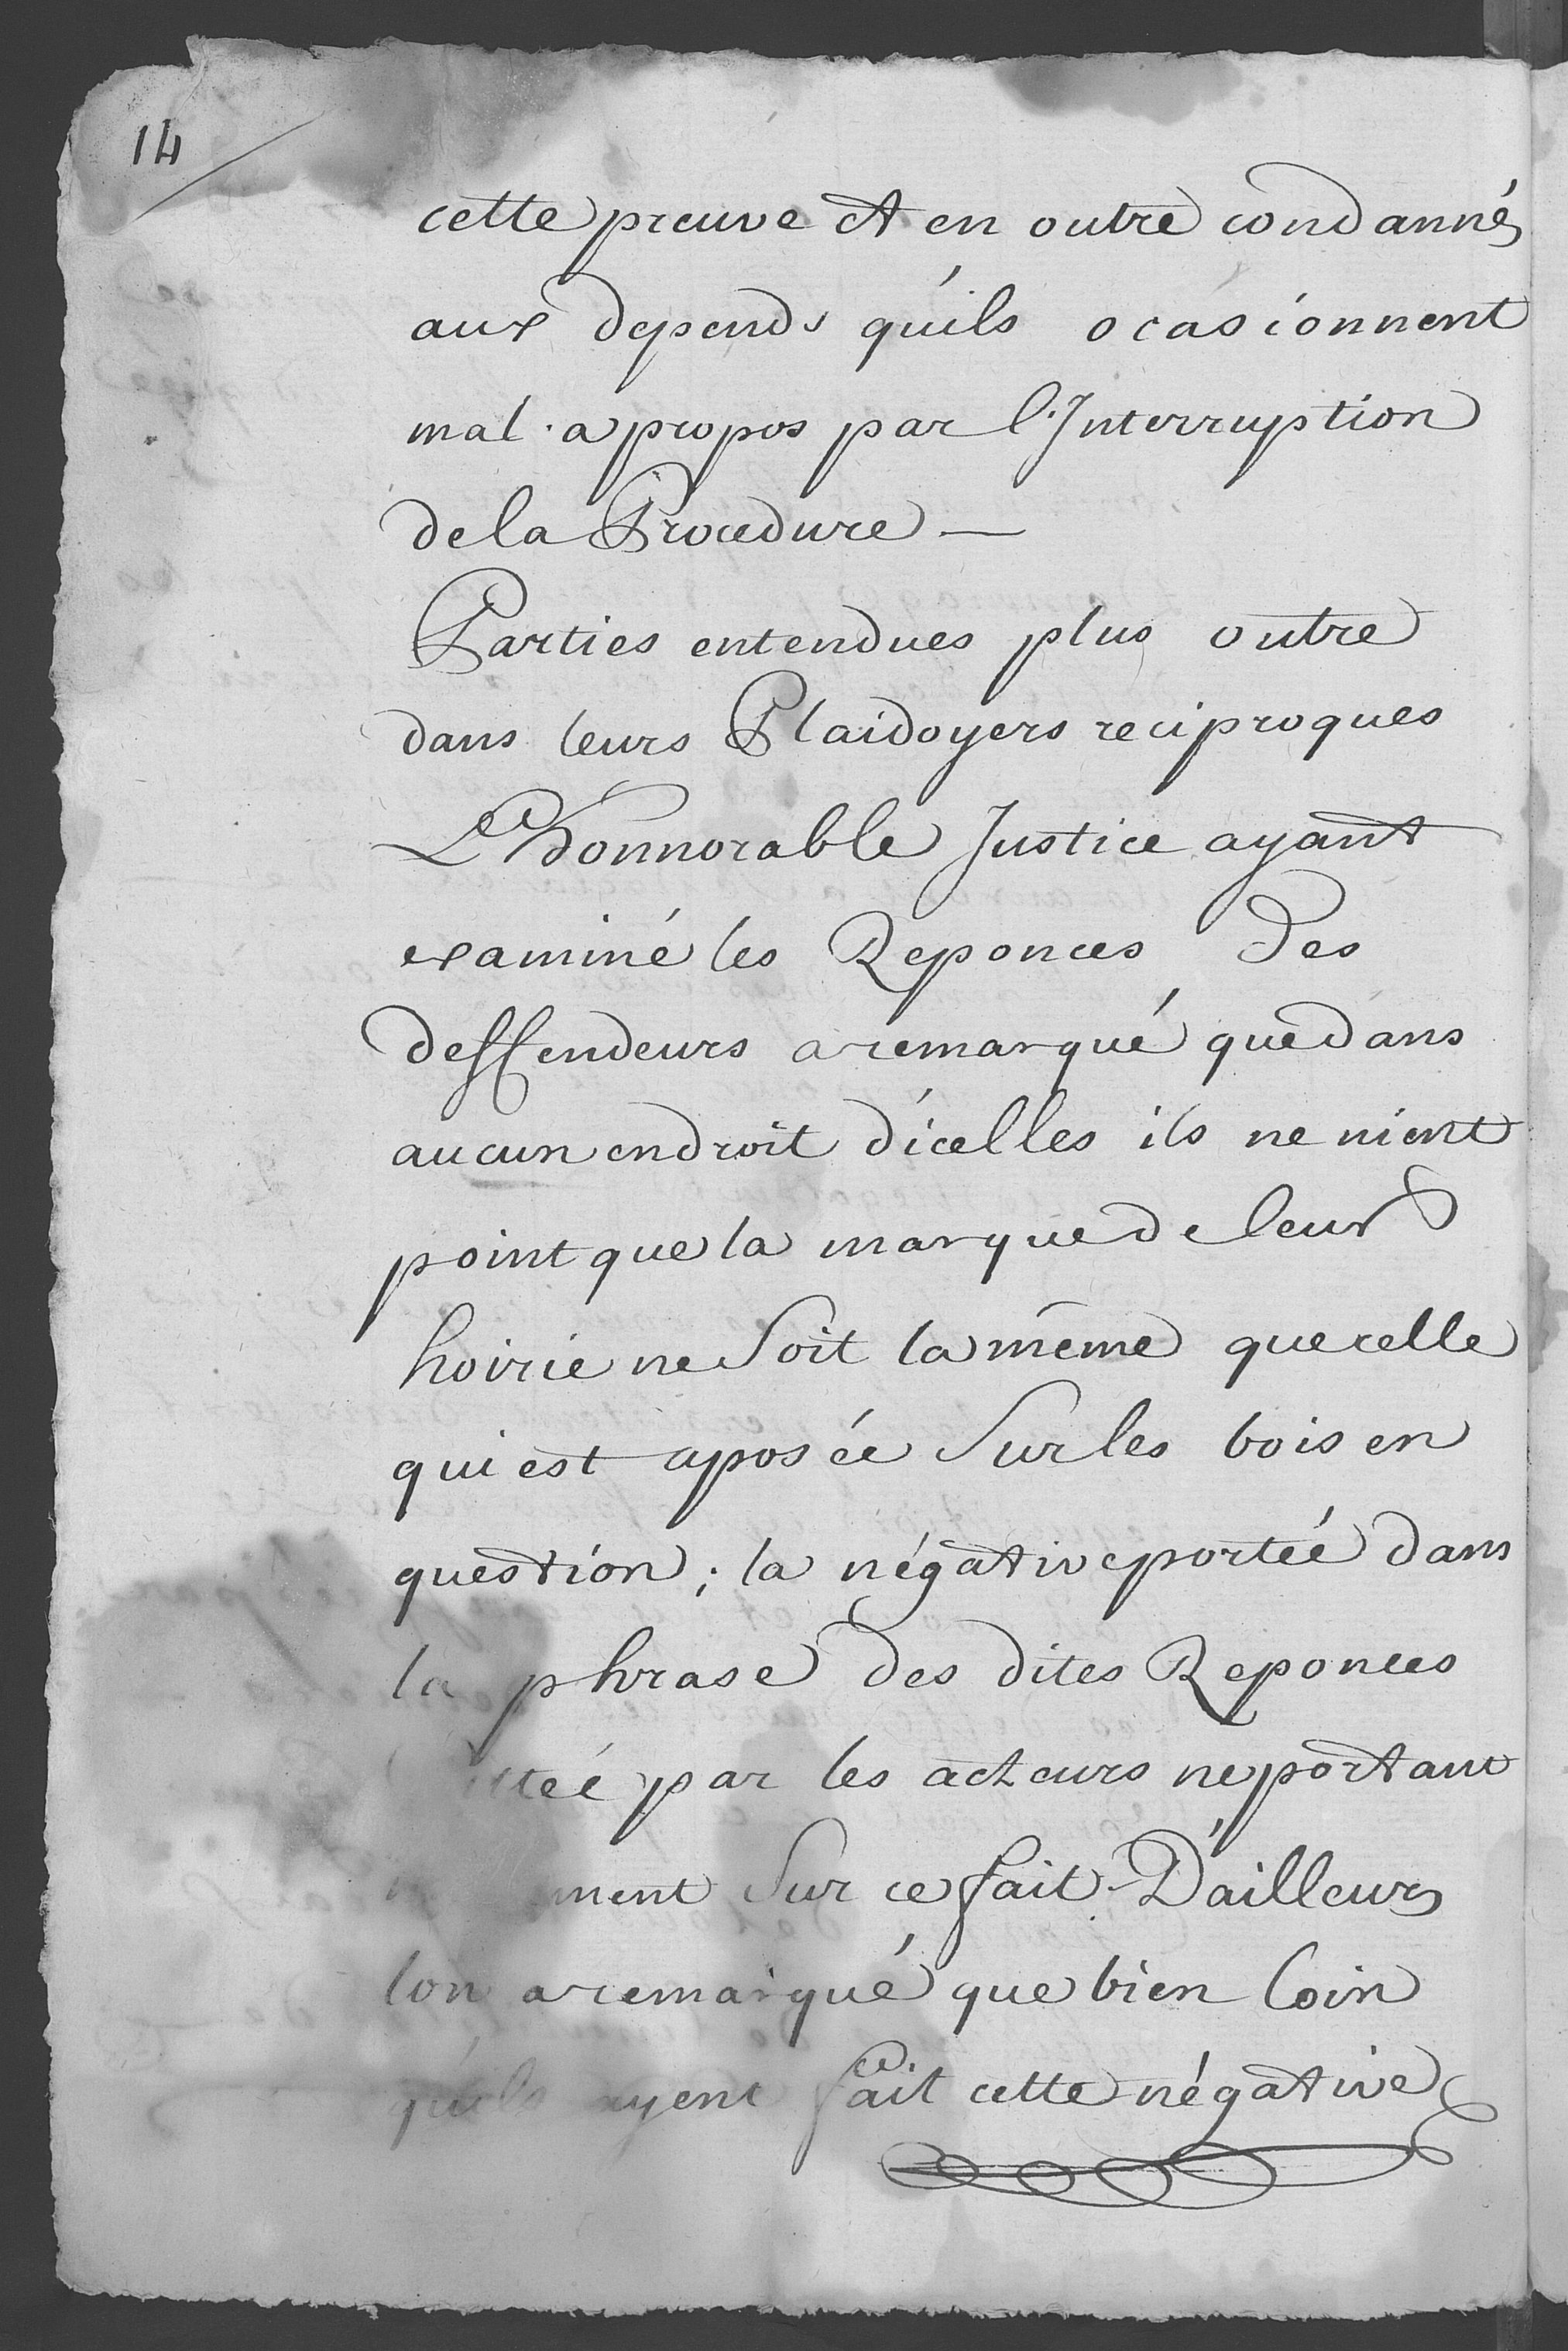 14
cette preuve et en outre condannés
aux depends qu'ils ocasionnent
mal a propos par l'Interruption
de la Procedure —
Parties entendues plus outre
dans leurs Plaidoyers reciproques
L'honnorable Justice ayant
examiné les Reponces des
deffendeurs a remarqué que dans
aucun endroit d'icelles ils ne nient
point que la marque de leur
hoirie ne Soit la même que celle
qui est aposée Sur les bois en
question; la négative portée dans
la phrase des dites Reponces
par les acteurs ne portant
Sur ce fait D'ailleurs
lon a remarqué que bien loin
qu'ils ayent fait cette négative